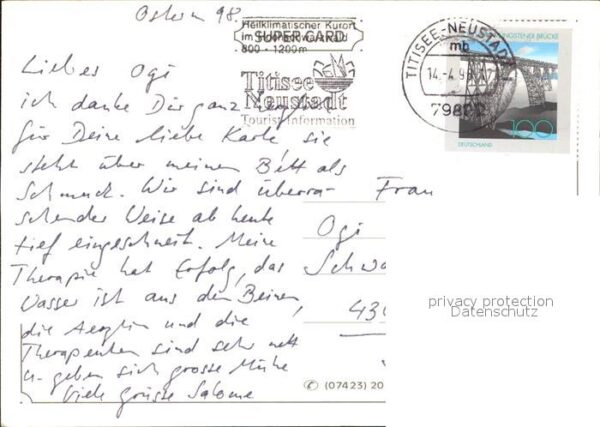 Ostern 98.
Heilklimatischer Kurort
im Hochschwarzwald
SUPER CARD
800 - 1200m
Titisee
Neustadt
Tourist Information
TITISEE-NEUSTADT
mb
14.-4.98
79822
MÜNGSTENER BRÜCKE
100
DEUTSCHLAND
Liebes Ogi
ich danke Dir ganz
für Deine liebe Karte, sie
steht über meinem Bett als
Schmuck. Wir sind überra-
schender Weise ab heute
tief eingeschneit. Meine
Therapie hat Erfolg, das
Wasser ist aus den Beinen,
die Aerztin und die
Therapeuten sind sehr nett
u. geben sich grosse Mühe
Viele grüsse Salome
Frau
Ogi
Schwa
430
privacy protection
Datenschutz
✆ (07423) 20